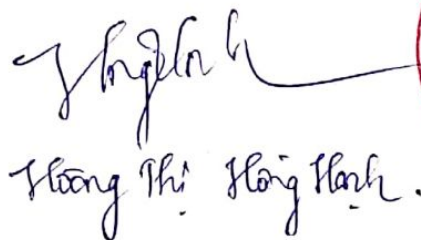 Hoàng Thị Hồng Hạnh.